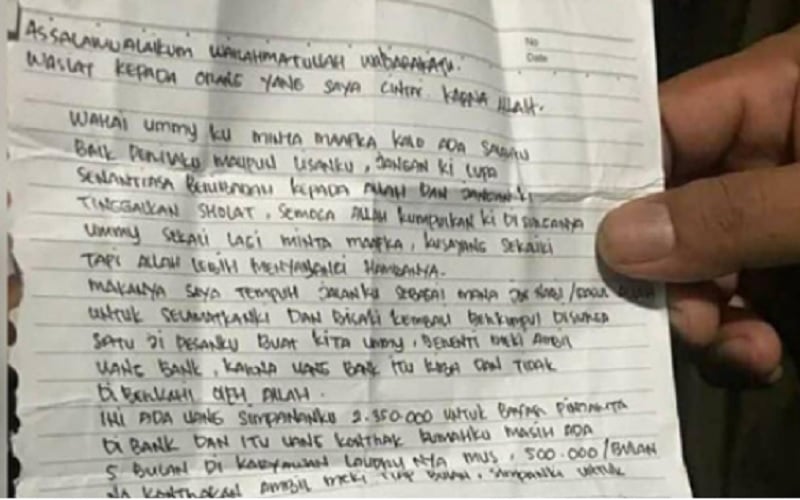 No
Date
ASSALAMUALAIKUM WARAHMATULLAH WABARAKATU.
WASIAT KEPADA ORANG YANG SAYA CINTAI KARNA ALLAH.
WAHAI UMMY KU MINTA MAAFKA KALO ADA SALAHKU
BAIK PERILAKU MAUPUN LISANKU, JANGAN KI LUPA
SENANTIASA BERIBADAH KEPADA ALLAH DAN JANGAN KI
TINGGALKAN SHOLAT, SEMOGA ALLAH KUMPULKAN KI DI SURGANYA
UMMY SEKALI LAGI MINTA MAAFKA, KUSAYANG SEKALIKI
TAPI ALLAH LEBIH MENYAYANGI HAMBANYA.
MAKANYA SAYA TEMPUH JALANKU SEBAGAI MANA NABI/RASUL ALLAH
UNTUK SELAMATKANKI DAN BISAKI KEMBALI BERKUMPUL DISURGA
SATU JI PESANKU BUAT KITA UMMY, BERENTI MEKI AMBIL
UANG BANK, KARENA UANG BANK ITU RIBA DAN TIDAK
DIBERKAHI OLEH ALLAH.
INI ADA UANG SIMPANANKU 2.350.000 UNTUK BAYAR PINJAMTA
DI BANK DAN ITU UANG KONTRAK RUMAHKU MASIH ADA
5 BULAN DI KARYAWAN LOUNDRY NYA MUS, 500.000/BULAN
NA KONTRAKAN AMBIL MEKI TIAP BULAN, SIMPANKI UNTUK